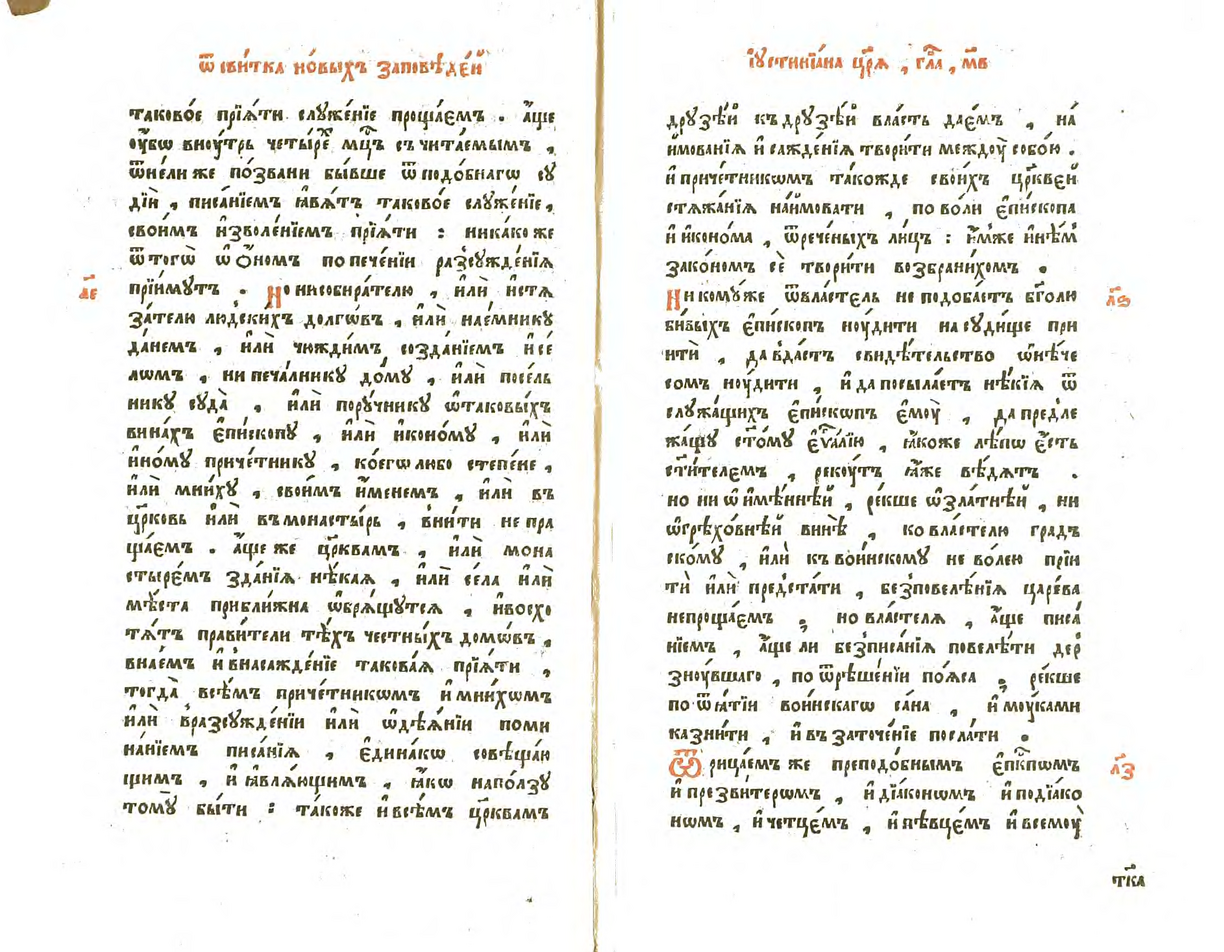 ѿ сви́тка но́выхъ заповѣде́й
таково́е прїѧ́ти слꙋже́нїе проща́емъ . а҆́ще
ᲂу҆́бѡ внꙋ́трь четы́ре мц҃ъ съчита́емымъ ,
ѿне́ли же по́звани бы́вше ѿ подо́бнагѡ сꙋ
дїѝ , писа́нїемъ ꙗ҆вѧ́тъ таково́е слꙋже́нїе,
свои́мъ и҆зволе́нїемъ прїѧ́ти : ника́ко же
ѿ тогѡ̀ ѡ҆ ѻ҆́номъ попече́нїи разсꙋжде́нїѧ
прїи́мꙋтъ .  Но ни собира́телю , и҆лѝ и҆стѧ
за́телю людски́хъ долгѡ́въ , и҆лѝ нае́мникꙋ
да́немъ , и҆лѝ чꙋжди́мъ созда́нїемъ и҆ се́
лѡмъ , ни печа́лникꙋ до́мꙋ , и҆лѝ посе́ль
никꙋ сꙋда̀ , и҆лѝ порꙋ́чникꙋ ѡ҆таковы́хъ
вина́хъ є҆пи́скопꙋ , и҆лѝ и҆коно́мꙋ , и҆лѝ
и҆но́мꙋ приче́тникꙋ , ко́егѡ либо степе́не ,
и҆лѝ мни́хꙋ , свои́мъ и҆́менемъ , и҆лѝ въ
цр҃ковь и҆лѝ въ монасты́рь , вни́ти не пра
ща́ем . а҆́ще же цр҃квамъ , и҆лѝ мона
стыре́мъ зда́нїѧ нѣ́каѧ , и҆лѝ се́ла и҆лѝ
мѣ́ста прибли́жна ѡ҆брѧ́щꙋтсѧ , и҆ восхо
тѧ́тъ прави́тели тѣ́хъ честны́хъ домѡ́въ ,
внае́мъ и҆ внасажде́нїе такова́ѧ прїѧ́ти ,
тогда̀ всѣ́мъ приче́тникѡмъ и҆ мни́хѡмъ
и҆лѝ вразсꙋжде́нїи и҆лѝ ѡ҆дѣѧ́нїи поми
на́нїемъ писа́нїѧ , є҆дина́кѡ совѣща́ю
щимъ , и҆ ꙗ҆влѧ́ющимъ , ꙗ҆́кѡ напо́лзꙋ
томꙋ̀ бы́ти : та́коже и҆ всѣ́мъ цр҃квамъ
л҃е
і҆ꙋстинїа́на цр҃ѧ , гл҃а , м҃в
дрꙋзѣ́й къ дрꙋзѣ́й вла́сть дае́мъ , на́
и҆мованїѧ и҆ сажде́нїѧ твори́ти междꙋ̀ собо́ю .
и҆ приче́тникѡмъ та́кожде свои́хъ цр҃кве́й
стѧжа́нїѧ наи́мовати , по во́ли є҆пи́скопа
и҆ и҆коно́ма , ѿрече́ныхъ ли́цъ : и҆́мже и҆нѣ́м
зако́номъ сѐ твори́ти возбрани́хомъ .
Ни комꙋ́же ѿвласте́ль не подоба́етъ бг҃олю
би́выхъ є҆пи́скопъ нꙋ́дити на сꙋди́ще прі
ити̇̀ , да вда́стъ свидѣ́тельство ѡ҆нѣ́че
сомъ нꙋ́дити , и҆ да посыла́етъ нѣ́кїѧ ѿ
слꙋжа́щихъ є҆пи́скѡпъ є҆мꙋ̀ , да предле
жа́щꙋ ст҃о́мꙋ є҆ѵ҃а́лїю , ꙗ҆́коже лѣ́пѡ є҆́сть
ст҃и́телемъ , рекꙋ́тъ ꙗ҆́же вѣ́дѧтъ .
но ни ѡ҆ и҆мѣ́ннѣй , ре́кше ѡ҆зла́тнѣй , ни
ѡ҆грѣхо́внѣй винѣ̀ , ко власте́лю гра́дъ
ско́мꙋ , и҆лѝ къ во́инскомꙋ не во́лею прїи
тѝ и҆лѝ предста́ти , без повелѣ́нїѧ царе́ва
непроща́емъ ; но власте́лѧ , а҆́ще писа́
нїемъ , а҆́ще ли без писа́нїѧ повелѣ́ти дер
знꙋ́вшаго , по ѿрѣше́нїи по́ѧса , ре́кше
по ѿѧ́тїи во́инскагѡ са́на , и҆ мꙋ́ками
казни́ти , и҆ въ заточе́нїе посла́ти .
Ѿрица́емъ же преподо́бнымъ є҆пⷭ҇кпѡмъ
и҆ презви́терѡмъ , и҆ дїа́конѡмъ и҆ подїа́ко
нѡмъ , и҆ четце́мъ , и҆ пѣвце́мъ и҆ всемꙋ̀
л҃ѕ
л҃з
тк҃а